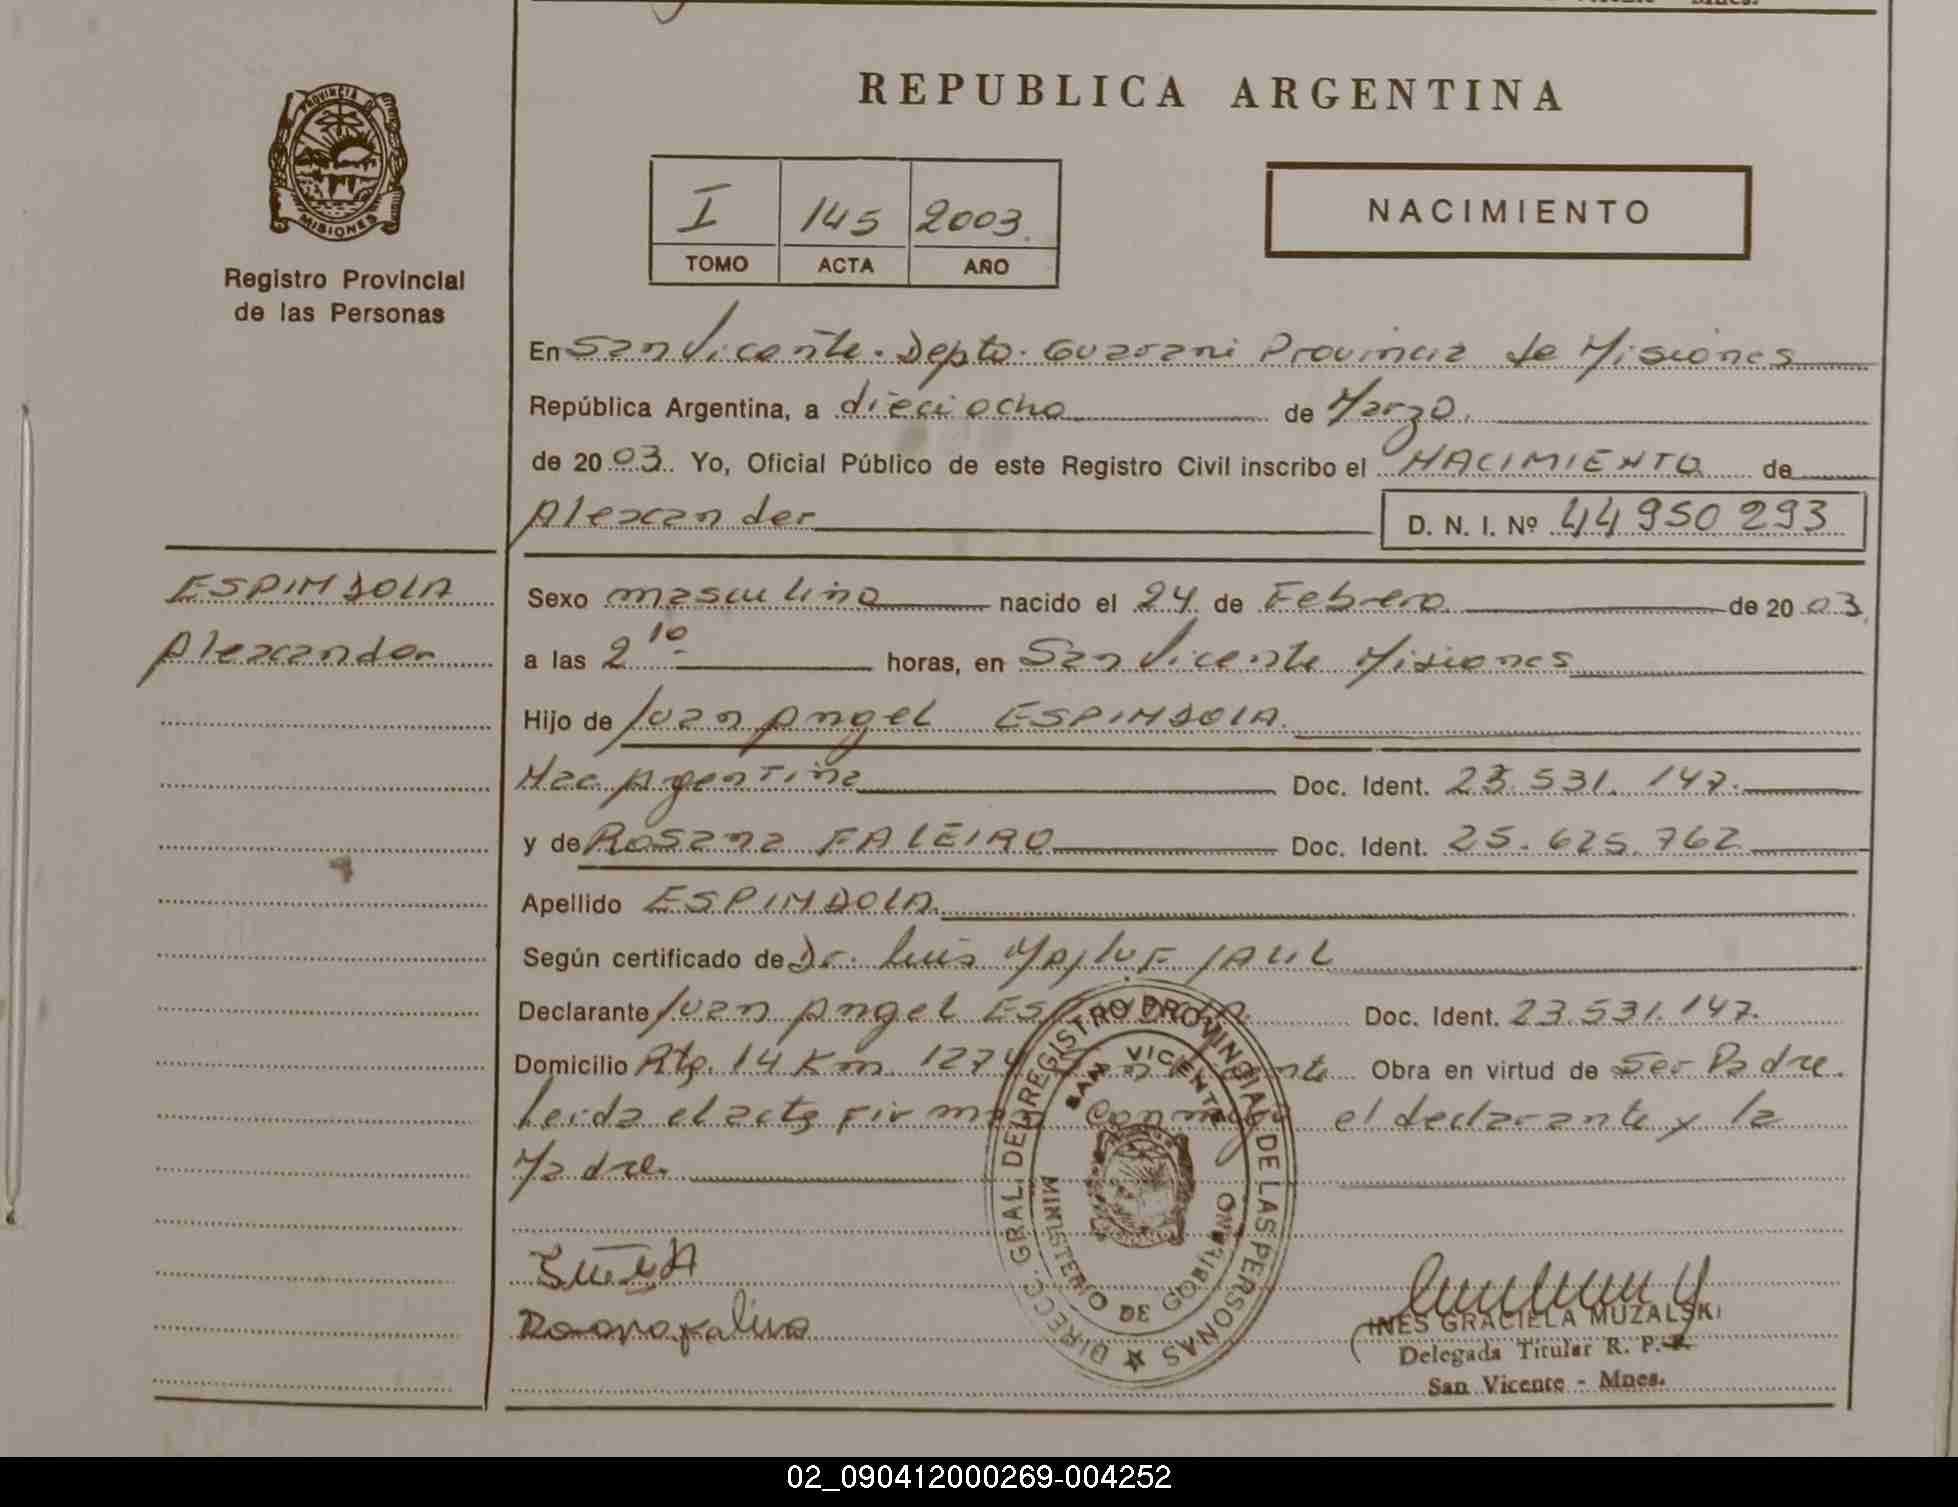 REPUBLICA ARGENTINA
PROVINCIA D MISIONES
Registro Provincial
de las Personas
I 145 2003.
TOMO ACTA AÑO
NACIMIENTO
En San Vicente. Depto. Guarani Provincia de Misiones
República Argentina, a dieciocho de Marzo.
de 20 03. Yo, Oficial Público de este Registro Civil inscribo el NACIMIENTO de
Alexander D. N. I. Nº 44950293
ESPINDOLA
Alexander
Sexo masculino nacido el 24 de Febrero de 20 03
a las 2 10 horas, en San Vicente Misiones
Hijo de Juan Angel ESPINDOLA.
Nac. Argentina Doc. Ident. 23.531.147.
y de Rosana FALEIRO Doc. Ident. 25.625.762
Apellido ESPINDOLA.
Según certificado de Dr. Luis
Declarante Juan Angel ESPINDOLA. Doc. Ident. 23.531.147.
Domicilio Rta. 14 Km. 1274 San Vicente Obra en virtud de Ser Padre.
Leida el acta firman Conmigo el declarante y la
Madre.
DIRECC. GRAL. DEL REGISTRO PROVINCIAL DE LAS PERSONAS
SAN VICENTE
MINISTERIO DE GOBIERNO
INES GRACIELA MUZALSKI
Delegada Titular R. P. P.
San Vicente - Mnes.
02_090412000269-004252